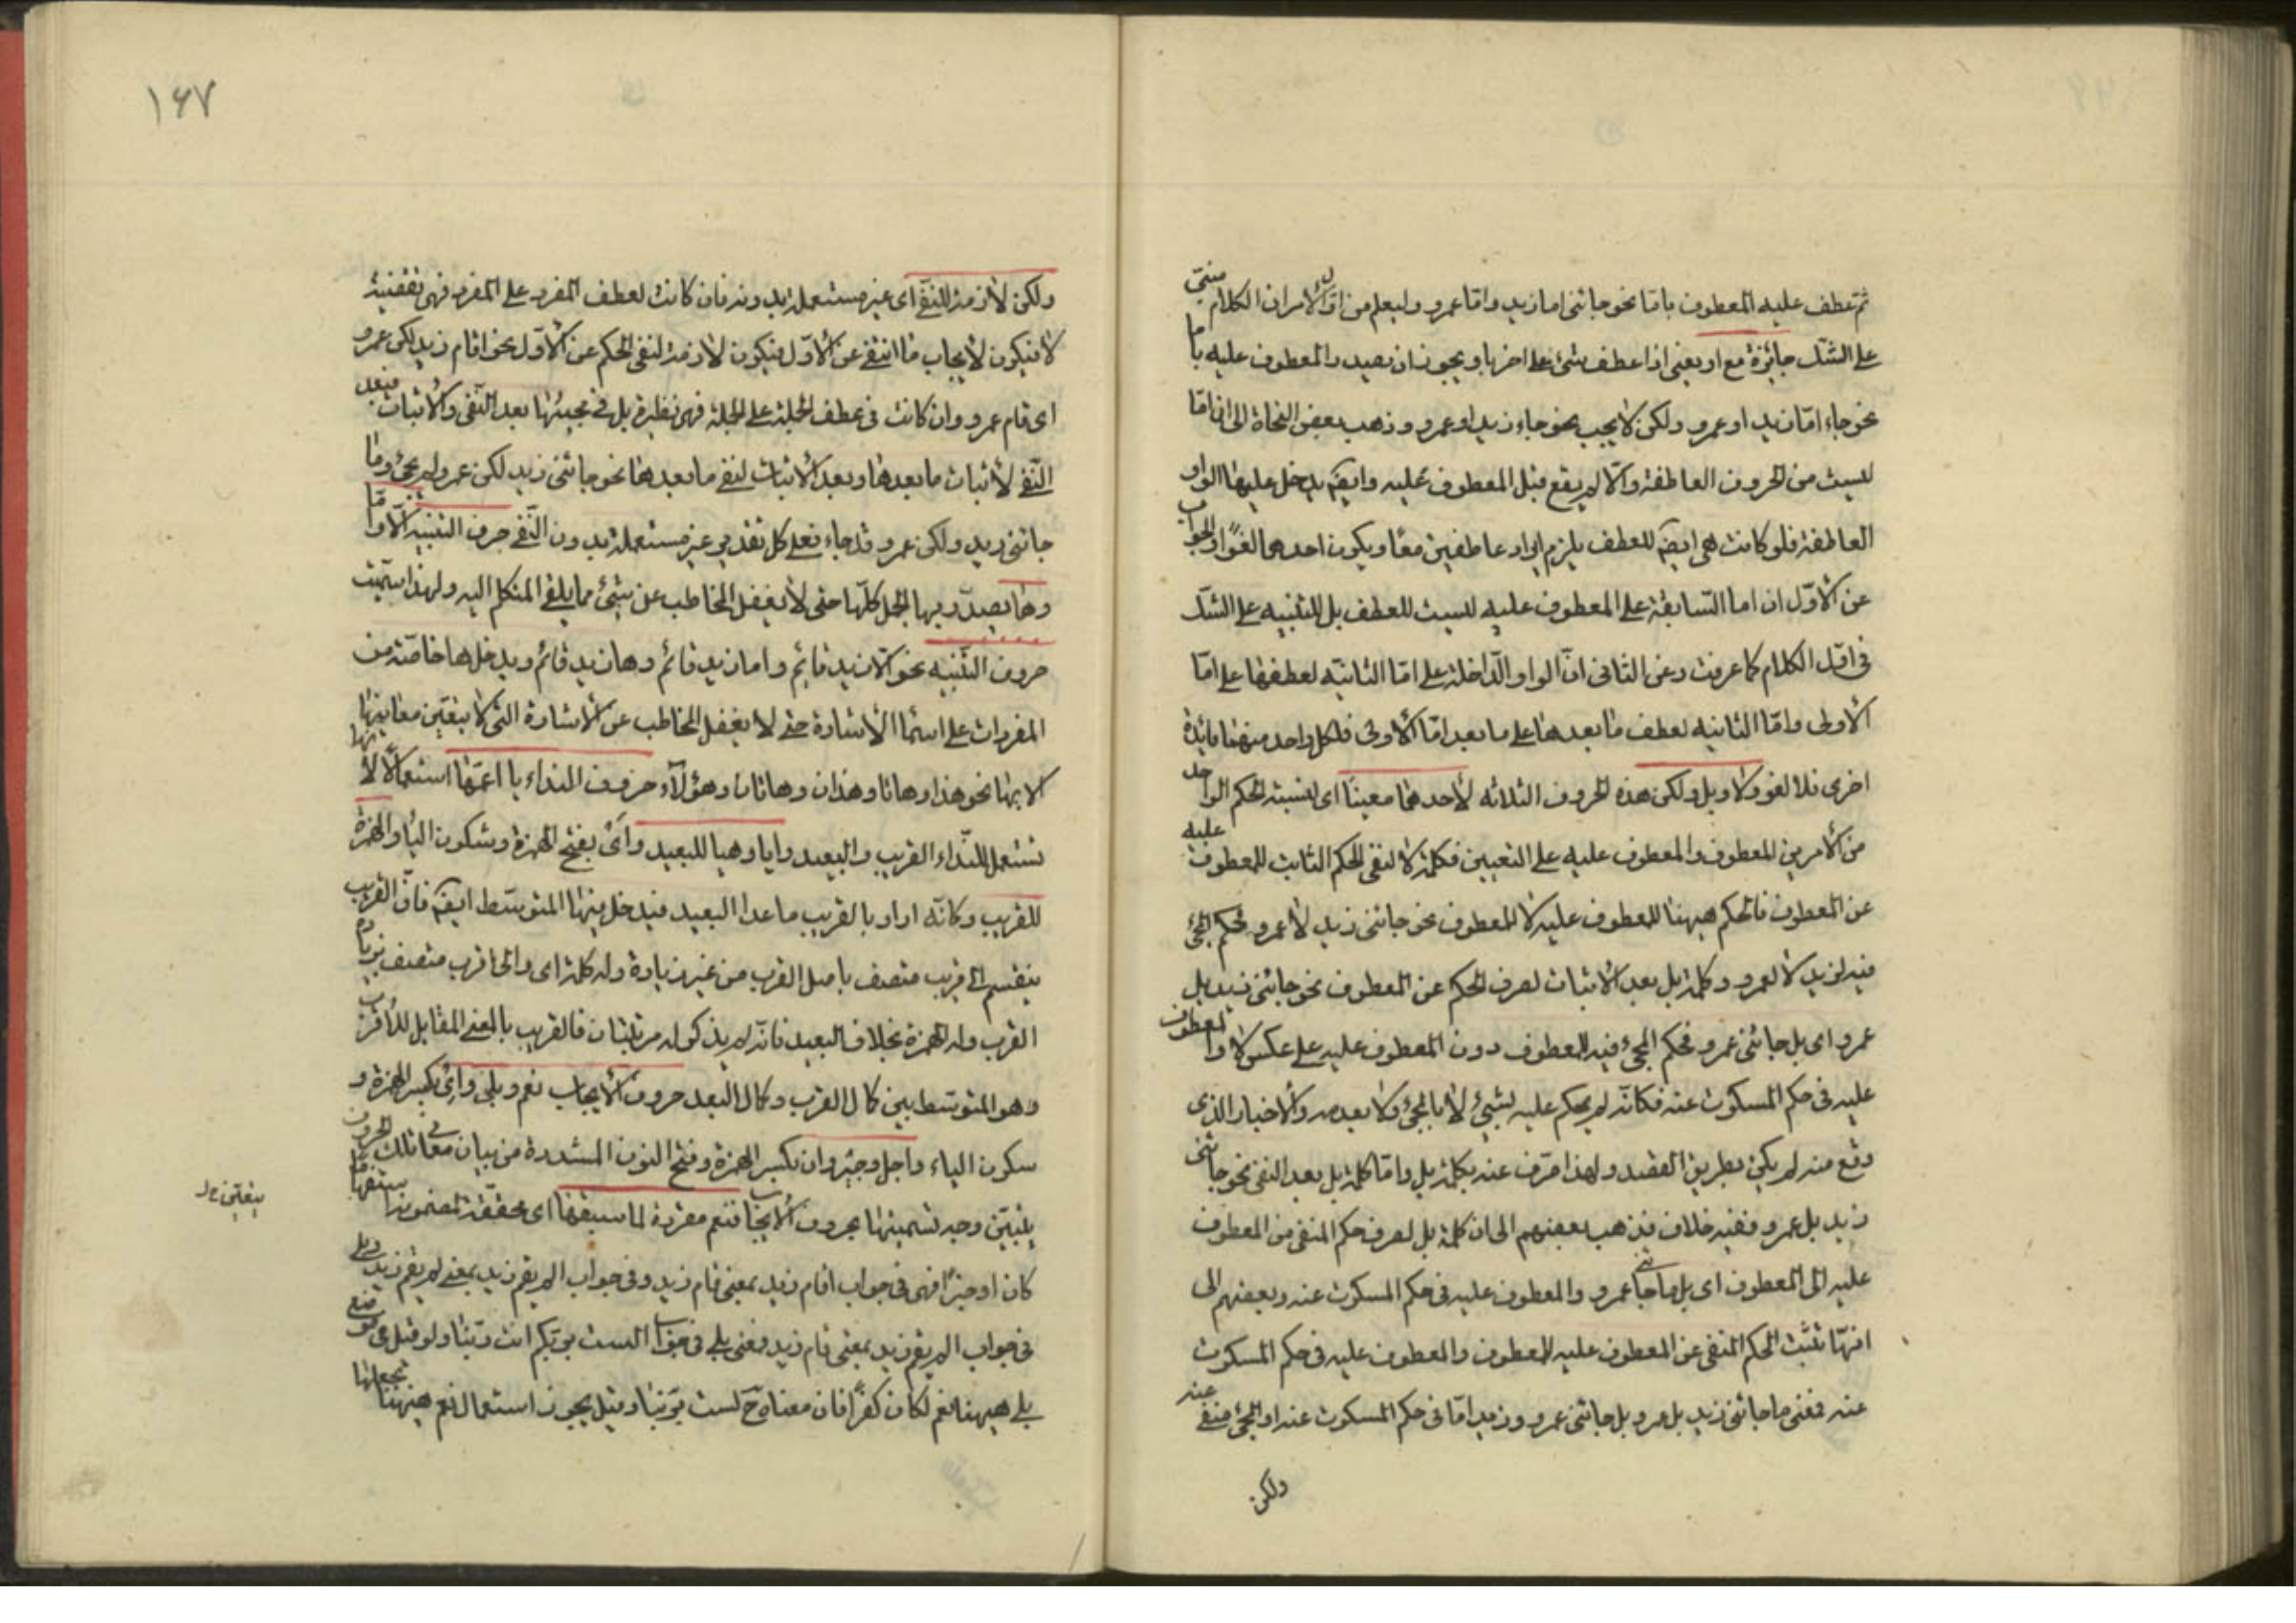 ثم عطف عليه المعطوف بامّا نحو جائنی اما زيد وامّا عمرو وليعلم من اوّل الأمر ان الكلام مبنیّ
علی الشكّ جائزة مع او يعنی اذا عطف شئ علی اخر باو يجوز ان يصدر المعطوف عليه باما
نحو جاء امّا زيد او عمرو ولكن لا يجب نحو جاء زيد او عمرو وذهب بعض النحاة الی ان امّا
ليست من الحروف العاطفة والّا لم يقع قبل المعطوف عليه وايضم يدخل عليها الواو
العاطفة فلو كانت هی ايضم للعطف يلزم ايراد عاطفين معًا ويكون احدهما لغوًا والجواب
عن الأوّل ان اما السّابقة علی المعطوف عليه ليست للعطف بل للتنبيه علی الشكّ
فی اوّل الكلام كما عرفت وعن الثانی انّ الواو الدّاخلة علی امّا الثانيّه لعطفها علی امّا
الأولی وامّا الثانيه لعطف ما بعدها علی ما بعد امّا الأولی فلكل واحد منهما فائدة
اخری فلا لغو ولا وبل ولكن هذه الحروف الثلاثه لأحدهما معينًا ای لنسبة الحكم الی واحد
من الأمرين المعطوف والمعطوف عليه علی التعيين فكلمة لا لنفی الحكم الثابت للمعطوف عليه
عن المعطوف فالحكم هيهنا للمعطوف عليه لا للمعطوف نحو جائنی زيد لا عمرو فحكم المجئ
فيه لزيد لا لعمرو وكلمة بل بعد الأثبات لصرف الحكم عن المعطوف نحو جائنی زيد بل
عمرو ای بل جائنی عمرو فحكم المجئ فيه للمعطوف دون المعطوف عليه علی عكس لا والمعطوف
عليه فی حكم المسكوت عنه فكانّه لم يحكم عليه بشئ لا بالمجئ ولا بعدمه والأخبار الذی
وقع منه لم يكن بطريق القصد ولهذا صرف عنه بكلمة بل وامّا كلمة بل بعد النفی نحو ما جائنی
زيد بل عمرو ففيه خلاف فذهب بعضهم الی ان كلمة بل لصرف حكم المنفی من المعطوف
عليه الی المعطوف ای بل ما جائنی عمرو والمعطوف عليه فی حكم المسكوت عنه وبعضهم الی
انّها تثبت الحكم المنفی عن المعطوف عليه للمعطوف والمعطوف عليه فی حكم المسكوت
عنه فمعنی ما جائنی زيد بل عمرو بل جائنی عمرو وزيد امّا فی حكم المسكوت عنه او المجئ منفی عنه
ولكن
١۶٧
ولكن لازمة للنفی ای غير مستعملة بدونه فان كانت لعطف المفرد علی المفرد فهی نقيضة
لا فيكون لأيجاب ما انتفی عن الأوّل فيكون لازمة لنفی الحكم عن الأوّل نحو ما قام زيد لكن عمرو
ای قام عمرو وان كانت فی عطف الجملة علی الجملة فهی نظيرة بل فی مجيئها بعد النفی والأثبات فبعد
النّفی لأثبات ما بعدها وبعد الأثبات لنفی ما بعدها نحو جائنی زيد لكن عمرو لم يجئ وما
جائنی زيد ولكن عمرو قد جاء فعلی كل تقدير غير مستعملة بدون النّفی حرف التنبيه ألا واما
وها يصدّر بها الجمل كلّها حتی لا يغفل المخاطب عن شئ مما يلقی المتكلم اليه ولهذا سمّيت
حروف التّنبيه نحو ألا زيد قائم واما زيد قائم وها زيد قائم ويدخل ها خاصّة من
المفردات علی اسماء الأشارة حتی لا يغفل المخاطب عن الأشارة التی لا يتعيّن معانيها
الا بها نحو هذا وهاتا وهذان وهاتان وهؤلاء حروف النداء يا اعمّها استعمالًا لأنّها
تستعمل للنّداء القريب والبعيد وايا وهيا للبعيد وأی بفتح الهمزة وسكون الياء والهمزة
للقريب وكانّه اراد بالقريب ما عدا البعيد فيدخل فيها المتوسّط ايضم فانّ القريب
ينقسم الی قريب متصف باصل القرب من غير زيادة وله كلمة ای والی اقرب متصف بزيادة
القرب وله الهمزة بخلاف البعيد فانّه لم يذكر له مرتبتان فالقريب بالمعنی المقابل للأقرب
وهو المتوسّط بين كمال القرب وكمال البعد حروف الأيجاب نعم وبلی وإی بكسر الهمزة و
سكون الياء واجل وجير وان بكسر الهمزة وفتح النون المشددة من بيان معانی تلك الحروف
يتبيّن وجه تسميتها بحروف الأيجاب فنعم مقررة لما سبقها ای محقّقة لمضمون ما سبقها استفهاما
كان او خبرًا فهی فی جواب اقام زيد بمعنی قام زيد وفی جواب الم يقم زيد بمعنی لم يقم زيد وبلی
فی جواب الم يقم زيد بمعنی قام زيد فمعنی بلی فی جواب الست بربّكم انت ربّنا ولو قيل فی موضع
بلی هيهنا نعم لكان كفرًا فان معناه ح لست بربّنا وقيل يجوز استعمال نعم هيهنا بجعلها